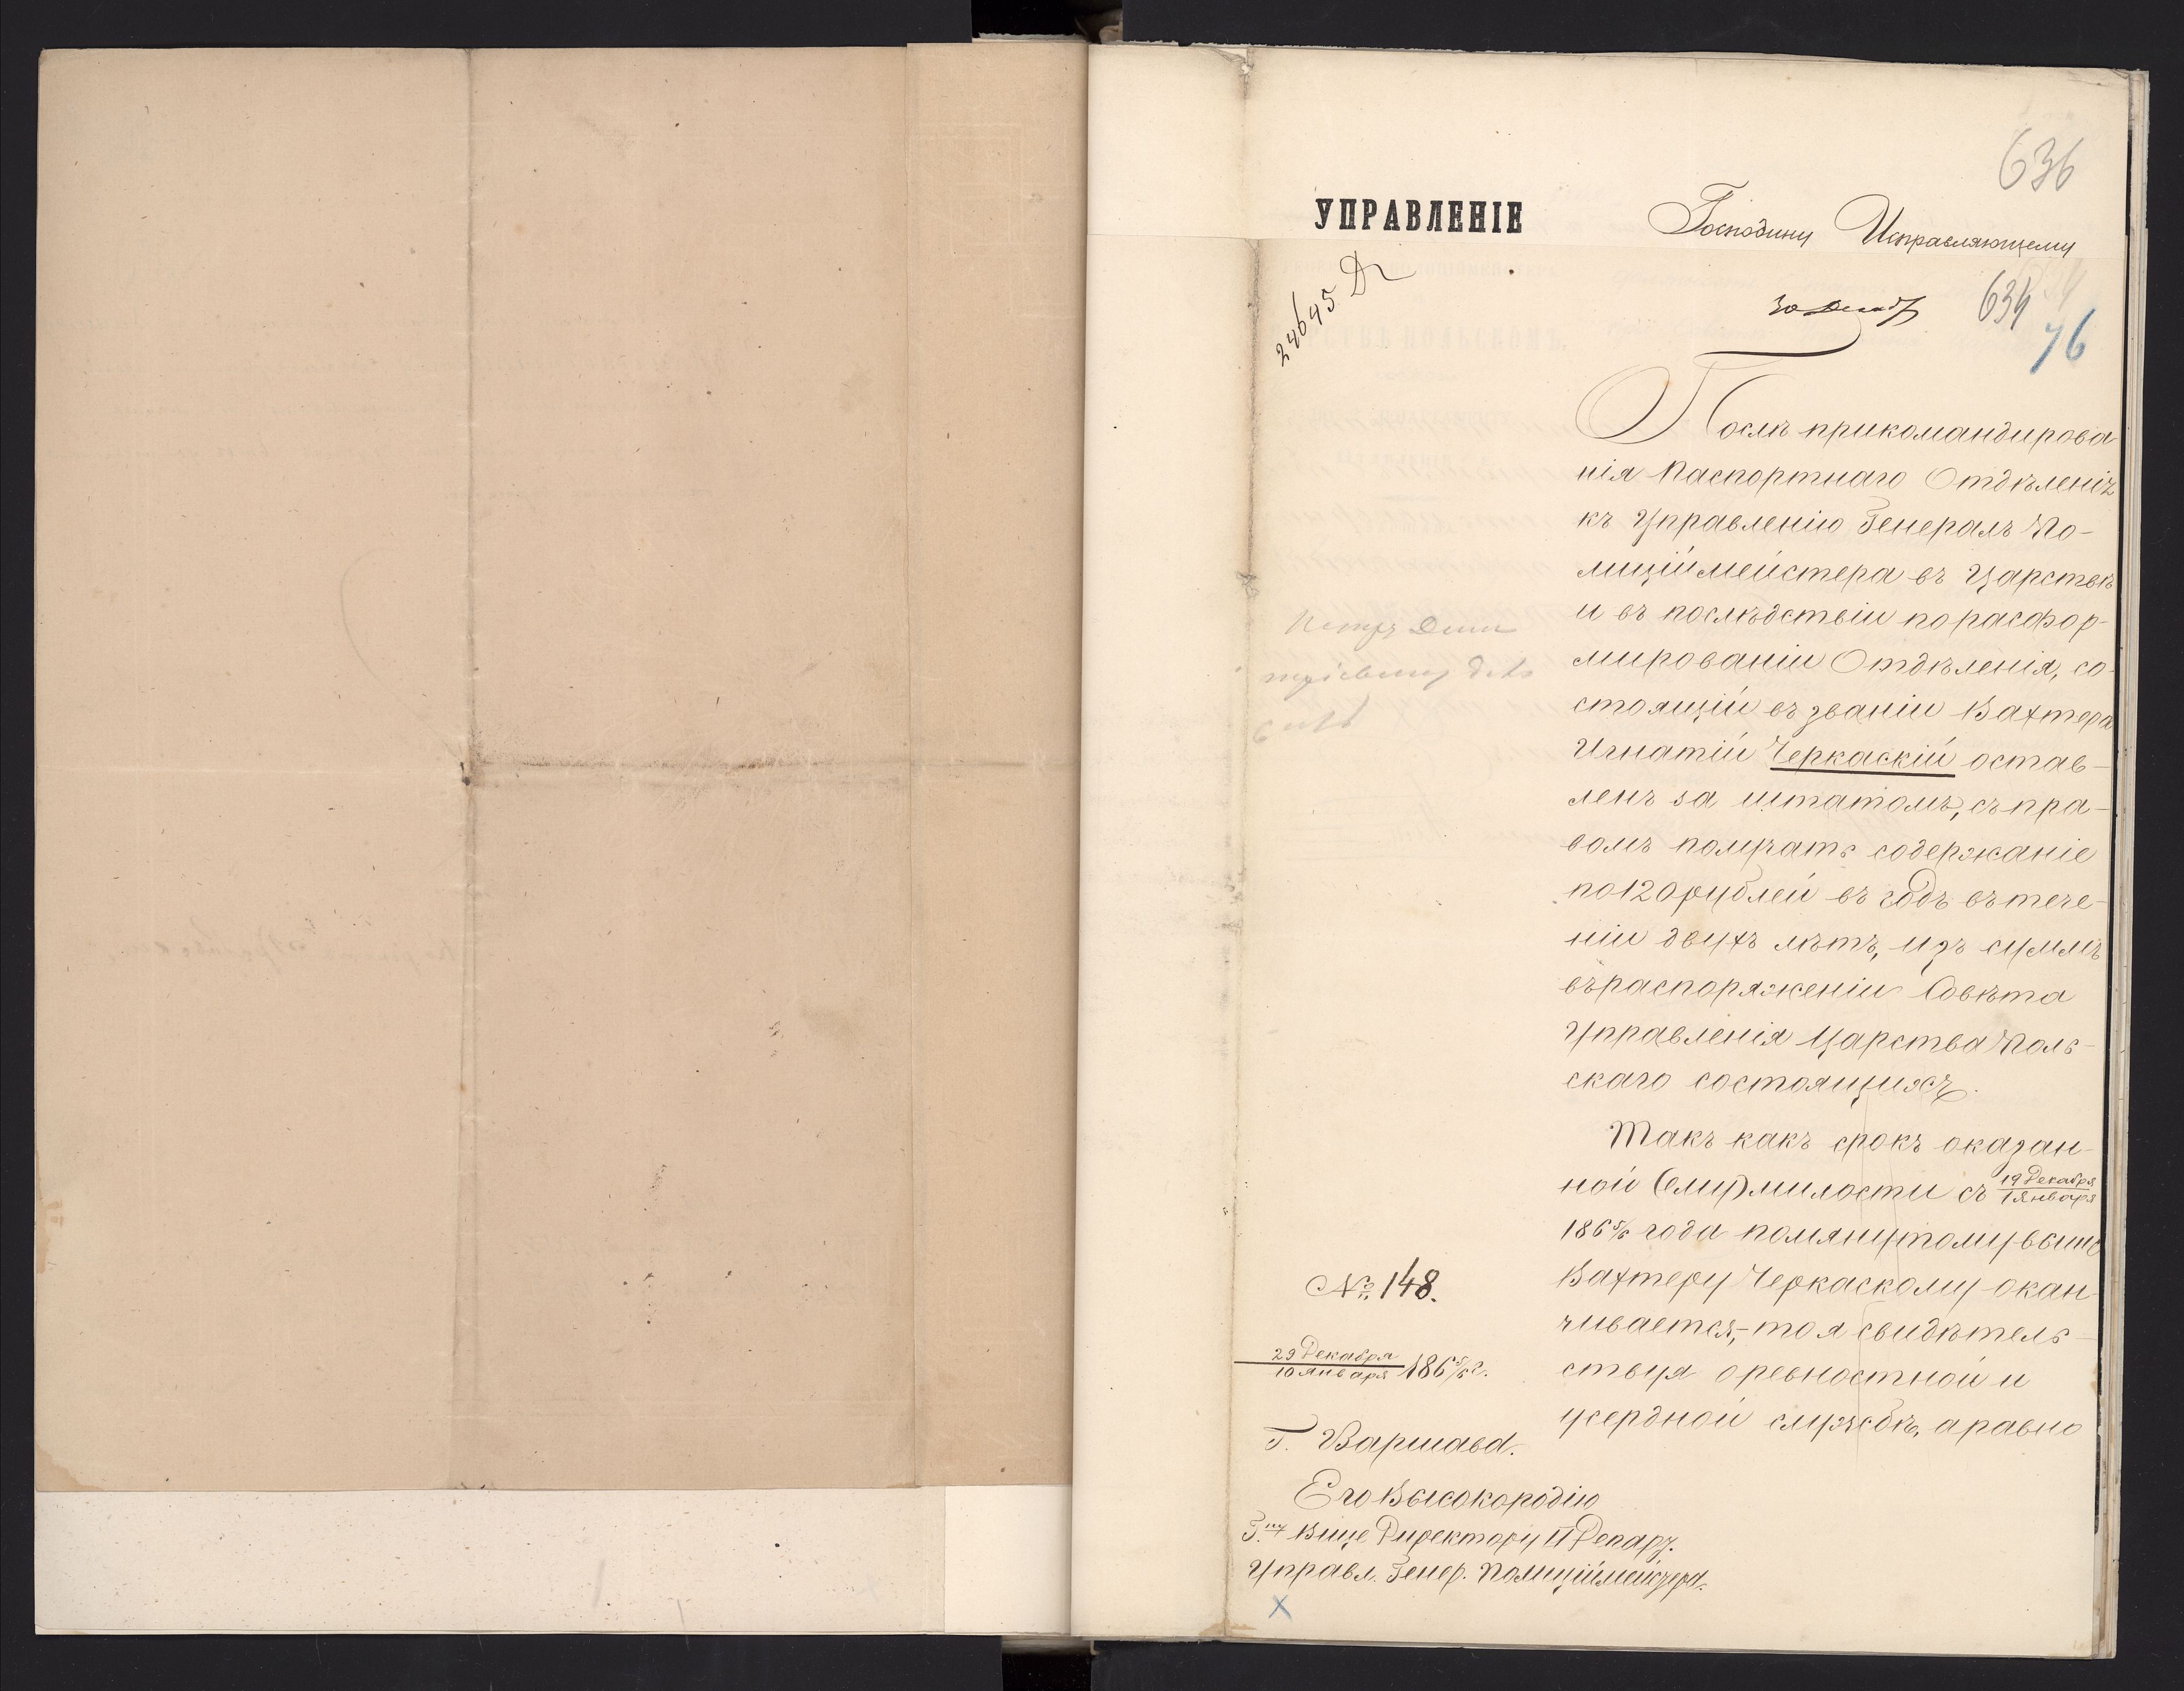 636
УПРАВЛЕНІЕ
Господину Исправляющему
24645
30 Декаб
634
76
Послѣ прикомандирова
нія Паспортнаго Отдѣленія
къ Управленію Генералъ По-
лиціймейстера въ Царствѣ
и въ послѣдствіи по расфор-
мированіи Отдѣленія, со-
стоящій въ званіи Вахтера
Игнатій Черкаскій остав-
ленъ за штатомъ, съ пра-
вомъ получать содержаніе
по 120 рублей въ годъ въ тече-
ніи двухъ лѣтъ, изъ суммъ
въ распоряженіи Совѣта
Управленія Царства Поль-
скаго состоящихъ.
Такъ какъ срокъ оказан-
ной (ему) милости съ 19 Декабря / 1 Января
1865/6 года помянутому выше
Вахтеру Черкаскому окан-
чивается, – то я свидѣтель-
ствуя о ревностной и
усердной службѣ, а равно
№ 148.
29 Декабря / 10 Января 1865/6 г.
Г. Варшава.
Его Высокородію
Г.ну Вице Директору II Департ.
Управл. Генер. Полиціймейстера.